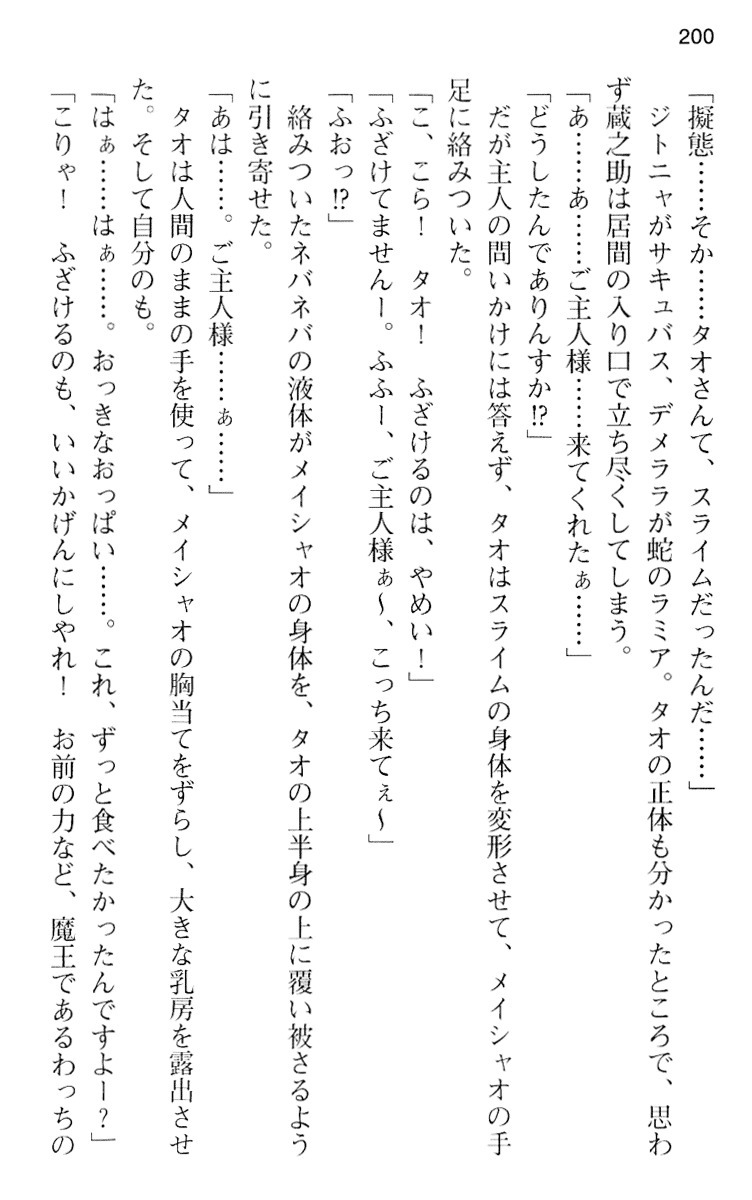 200
「擬態……そか……タオさんて、スライムだったんだ……」
ジトニャがサキュバス、デメララが蛇のラミア。タオの正体も分かったところで、思わ
ず蔵之助は居間の入り口で立ち尽くしてしまう。
「あ……あ……ご主人様……来てくれたぁ……」
「どうしたんでありんすか!?」
だが主人の問いかけには答えず、タオはスライムの身体を変形させて、メイシャオの手
足に絡みついた。
「こ、こら！　タオ！　ふざけるのは、やめい！」
「ふざけてませんー。ふふー、ご主人様ぁ〜、こっち来てぇ〜」
「ふおっ!?」
絡みついたネバネバの液体がメイシャオの身体を、タオの上半身の上に覆い被さるよう
に引き寄せた。
「あは……。ご主人様……ぁ……」
タオは人間のままの手を使って、メイシャオの胸当てをずらし、大きな乳房を露出させ
た。そして自分のも。
「はぁ……はぁ……。おっきなおっぱい……。これ、ずっと食べたかったんですよー？」
「こりゃ！　ふざけるのも、いいかげんにしやれ！　お前の力など、魔王であるわっちの